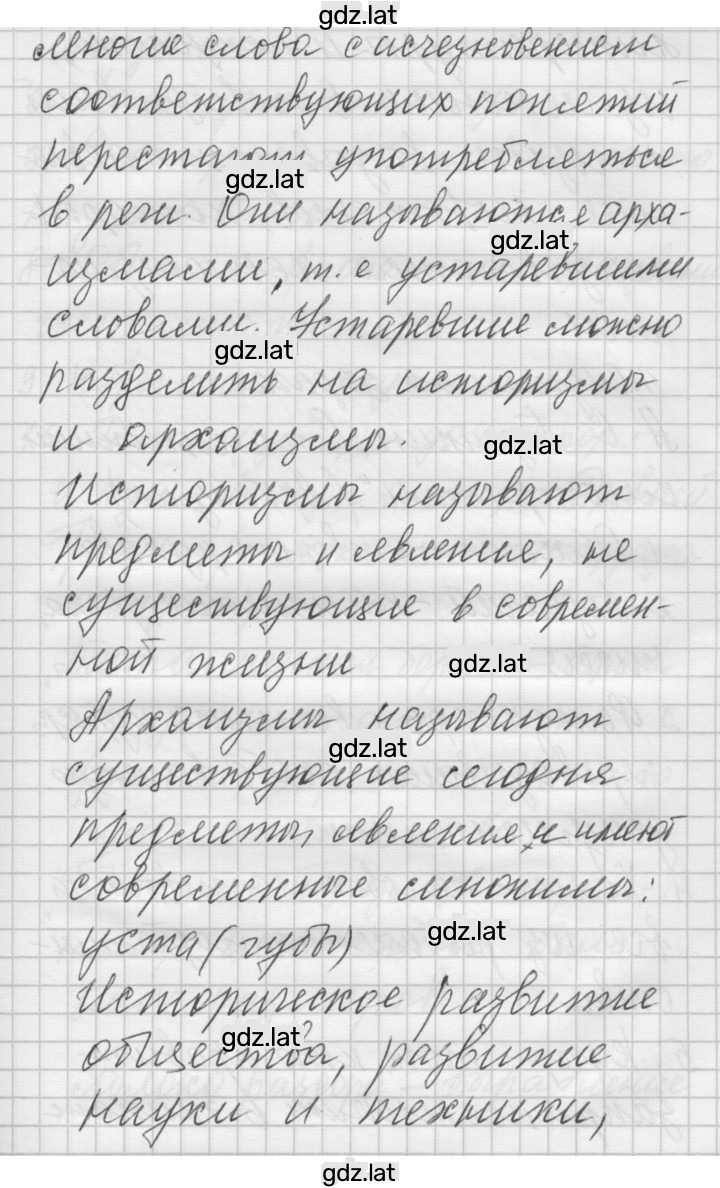 gdz.lat
многие слова с исчезновением
соответствующих понятий
перестают употребляться
gdz.lat
в речи. Они называются арха-
gdz.lat
измами, т. е устаревшими
словами. Устаревшие можно
gdz.lat
разделить на историзмы
и архаизмы.
gdz.lat
Историзмы называют
предметы и явление, не
существующие в современ-
ной жизни
gdz.lat
Архаизмы называют
gdz.lat
существующие сегодня
предметы, явления и имеют
современные синонимы:
уста (губы)
gdz.lat
Историческое развитие
gdz.lat
общества, развитие
науки и техники,
gdz.lat